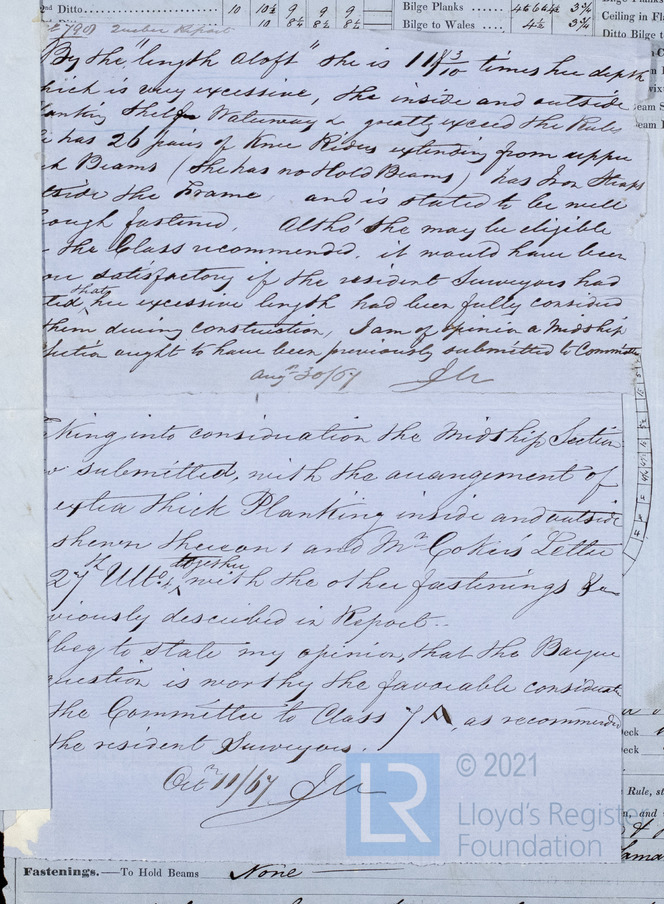 2nd Ditto 10 10½ 9 9 9
10 8½ 8½ 8½
Bilge Planks 4½ 6 4 4½ 3¾
Bilge to Wales 4½ 3¾
Ceiling in Fl
Ditto Bilge t
7901 Quebec Report
By the "length Aloft" she is 11 3/10 times her depth
hich is very excessive, the inside and outside
lanking Shelf Waterway & greatly exceed the Rule
e has 26 pairs of Knee Riders extending from uppe
k Beams (She has no Hold Beams) has Iron Straps
tside the Frame, and is stated to be well
ough fastened. Altho' she may be eligible
the Class recommended, it would have been
ore satisfactory if the resident Surveyors had
ted that her excessive length had been fully considered
them during construction, I am of opinion a Midship
ection ought to have been previously submitted to Committee
Augt 30/67
king into consideration the Midship Section
w submitted, with the arrangement of
extra thick Planking inside and outside
shewn thereon; and Mr Coker's Letter
27th Ulto, together with the other fastenings &c
viously described in Report..
beg to state my opinion, that the Barque
uestion is worthy the favorable considerat
the Committee to Class 7 A, as recommended
the resident Surveyors.
Octr 11/67
© 2021
LR
Lloyd's Register
Foundation
eck
eck
Rule, st
n, and
Fastenings.—To Hold Beams None